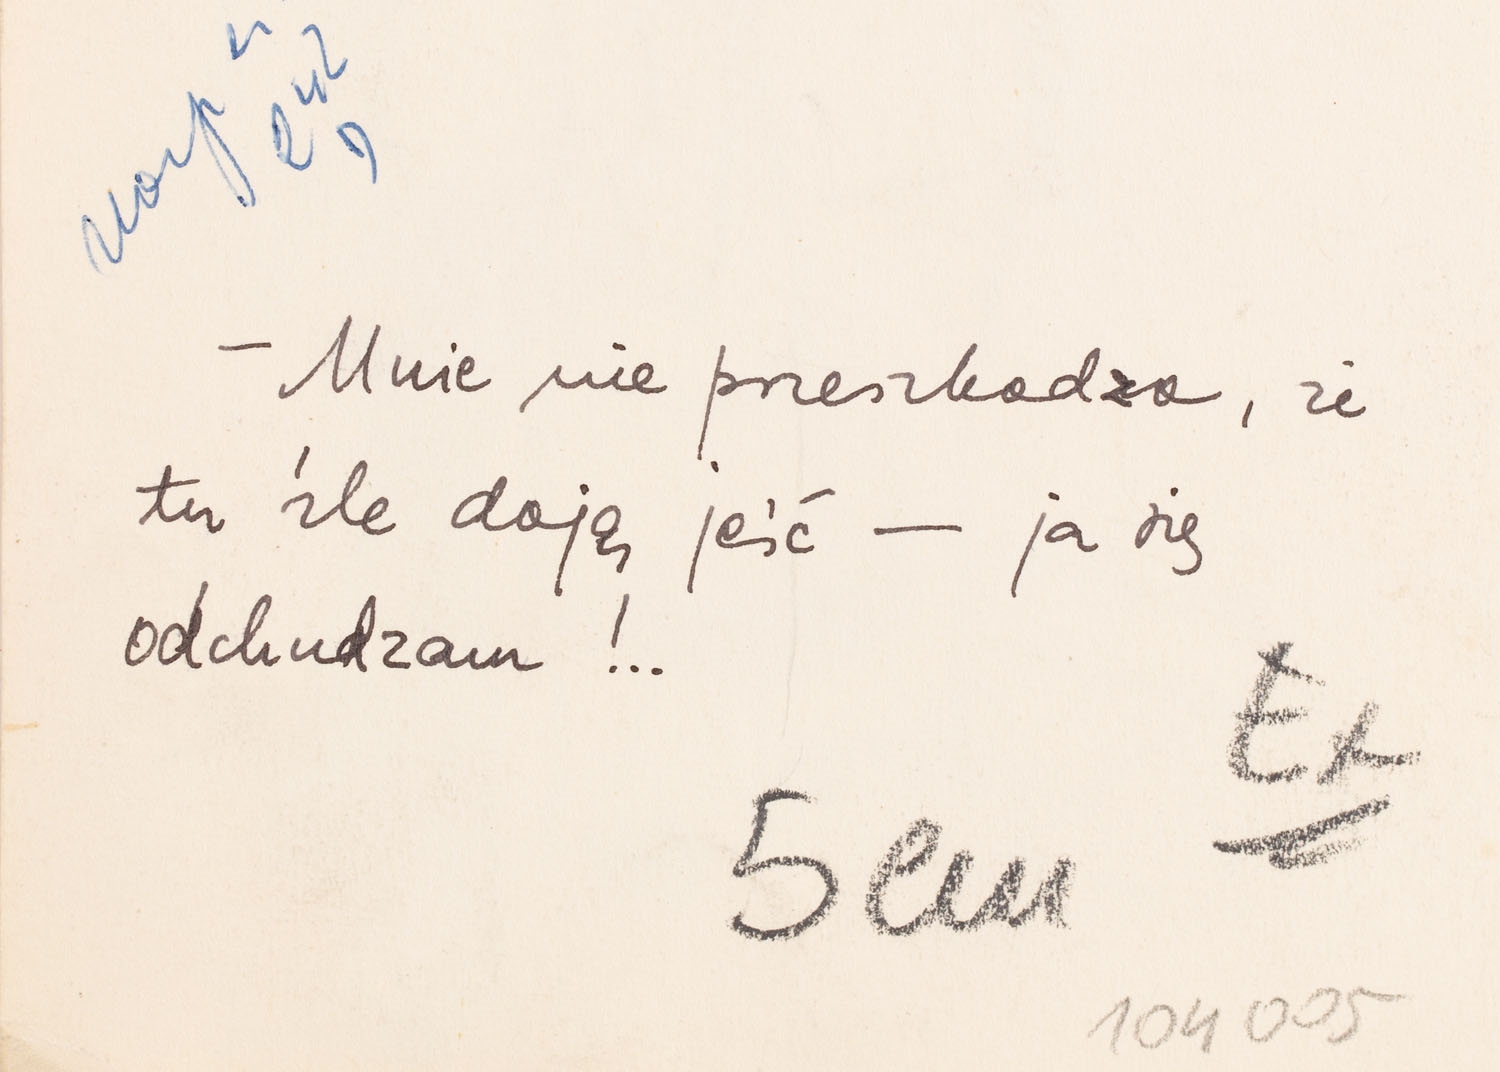 – Mnie nie przeszkadza, że
tu źle dają jeść — ja się
odchudzam !...
Ex
5 cm
104 005